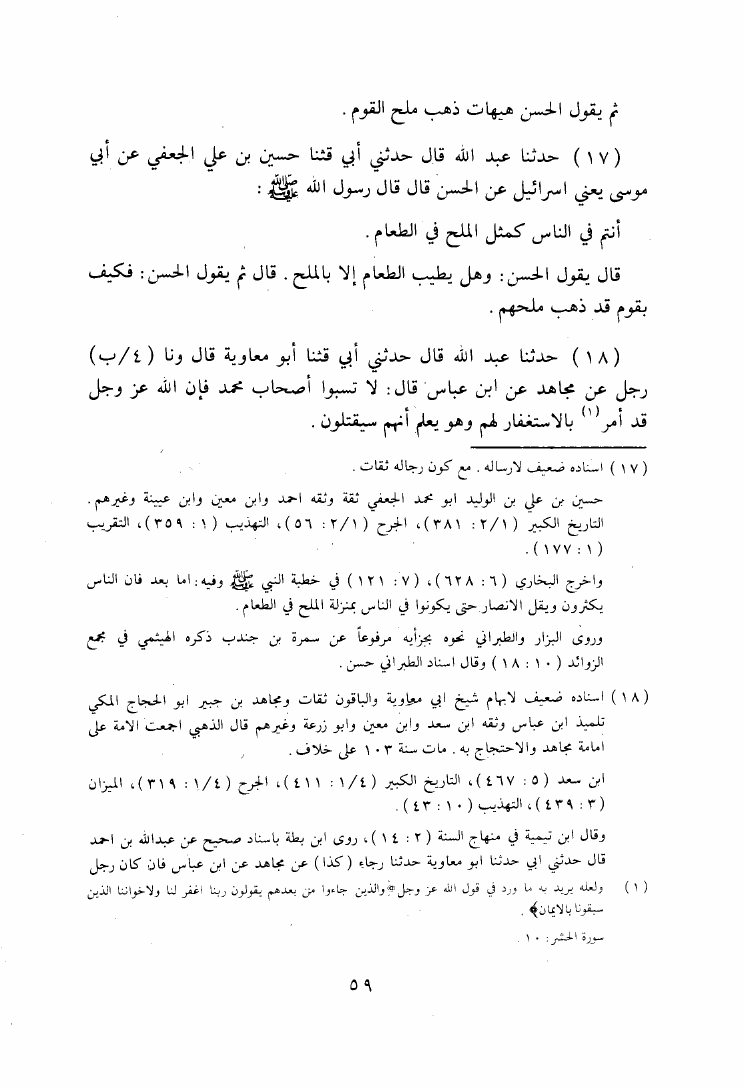 ثم يقول الحسن هيهات ذهب ملح القوم .
(١٧) حدثنا عبد الله قال حدثني أبي قثنا حسين بن علي الجعفي عن أبي
موسى يعني اسرائيل عن الحسن قال قال رسول الله ﷺ :
أنتم في الناس كمثل الملح في الطعام .
قال يقول الحسن : وهل يطيب الطعام إلا بالملح . قال ثم يقول الحسن : فكيف
بقوم قد ذهب ملحهم .
(١٨) حدثنا عبد الله قال حدثني أبي قثنا أبو معاوية قال ونا (٤/ب)
رجل عن مجاهد عن ابن عباس قال : لا تسبوا أصحاب محمد فإن الله عز وجل
قد أمر (١) بالاستغفار لهم وهو يعلم أنهم سيقتلون .
(١٧) اسناده ضعيف لارساله . مع كون رجاله ثقات .
حسين بن علي بن الوليد ابو محمد الجعفي ثقة وثقه احمد وابن معين وابن عيينة وغيرهم .
التاريخ الكبير (٢/١ : ٣٨١)، الجرح (٢/١ : ٥٦)، التهذيب (١ : ٣٥٩)، التقريب
(١ : ١٧٧) .
واخرج البخاري (٦ : ٦٢٨)، (٧ : ١٢١) في خطبة النبي ﷺ وفيه : اما بعد فان الناس
يكثرون ويقل الانصار حتى يكونوا في الناس بمنزلة الملح في الطعام .
وروى البزار والطبراني نحوه بجزأيه مرفوعاً عن سمرة بن جندب ذكره الهيثمي في مجمع
الزوائد (١٠ : ١٨) وقال اسناد الطبراني حسن .
(١٨) اسناده ضعيف لابهام شيخ ابي معاوية والباقون ثقات ومجاهد بن جبير ابو الحجاج المكي
تلميذ ابن عباس وثقه ابن سعد وابن معين وابو زرعة وغيرهم قال الذهبي اجمعت الامة على
امامة مجاهد والاحتجاج به . مات سنة ١٠٣ على خلاف .
ابن سعد (٥ : ٤٦٧)، التاريخ الكبير (١/٤ : ٤١١)، الجرح (١/٤ : ٣١٩)، الميزان
(٣ : ٤٣٩)، التهذيب (١٠ : ٤٣) .
وقال ابن تيمية في منهاج السنة (٢ : ١٤)، روى ابن بطة باسناد صحيح عن عبدالله بن احمد
قال حدثني ابي حدثنا ابو معاوية حدثنا رجاء (كذا) عن مجاهد عن ابن عباس فان كان رجل
(١) ولعله يريد به ما ورد في قول الله عز وجل ﴿والذين جاءوا من بعدهم يقولون ربنا اغفر لنا ولاخواننا الذين
سبقونا بالايمان﴾ .
سورة الحشر : ١٠ .
٥٩